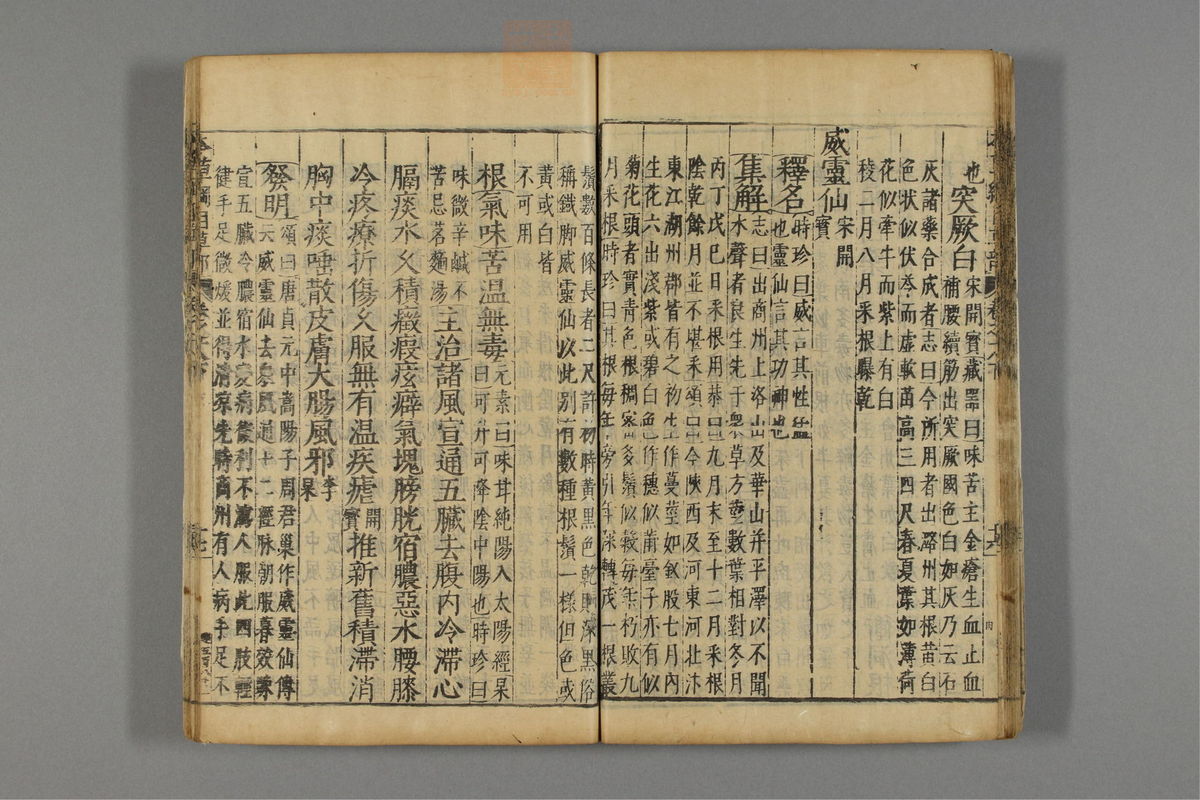 也突厥白宋開寶藏器曰味苦主金瘡生血止血
補腰續筋出突厥國色白如灰乃云石
灰諸藥合成者志曰今所用者出潞州其根黃白
色狀似伏苓而虛軟苗高三四尺春夏葉如薄荷
花似牽牛而紫上有白
稜二月八月采根曝乾
威靈仙宋開寶
釋名時珍曰威言其性猛
也靈仙言其功神也
集解志曰出商州上洛山及華山并平澤以不聞
水聲者良生先于衆草方莖數葉相對冬月
丙丁戊巳日采根用恭曰九月末至十二月采根
陰乾餘月並不堪采頌曰今陝西及河東河北汴
東江湖州郡皆有之初生作蔓莖如釵股七月內
生花六出淺紫或碧白色作穗似莆臺子亦有似
菊花頭者實青色根稠密多鬚似穀每年朽敗九
月采根時珍曰其根每年旁引年深轉茂一根叢
鬚數百條長者二尺許初時黃黑色乾則深黑俗
稱鐵脚威靈仙以此别有數種根鬚一樣但色或
黃或白皆
不可用
根氣味苦温無毒元素曰味甘純陽入太陽經杲
曰可升可降陰中陽也時珍曰
味微辛鹹不
苦忌茗麵湯
主治諸風宣通五臟去腹内冷滯心
膈痰水久積癥瘕痃癖氣塊膀胱宿膿惡水腰膝
冷疼療折傷久服無有温疾瘧開寶推新舊積滯消
胸中痰唾散皮膚大腸風邪李杲
發明頌曰唐貞元中嵩陽子周君巢作威靈仙傳
云威靈仙去衆風通十二經脉朝服暮效疎
宣五臟冷膿宿水變病微利不瀉人服此四肢輕
健手足微煖並得清凉先時商州有人病手足不